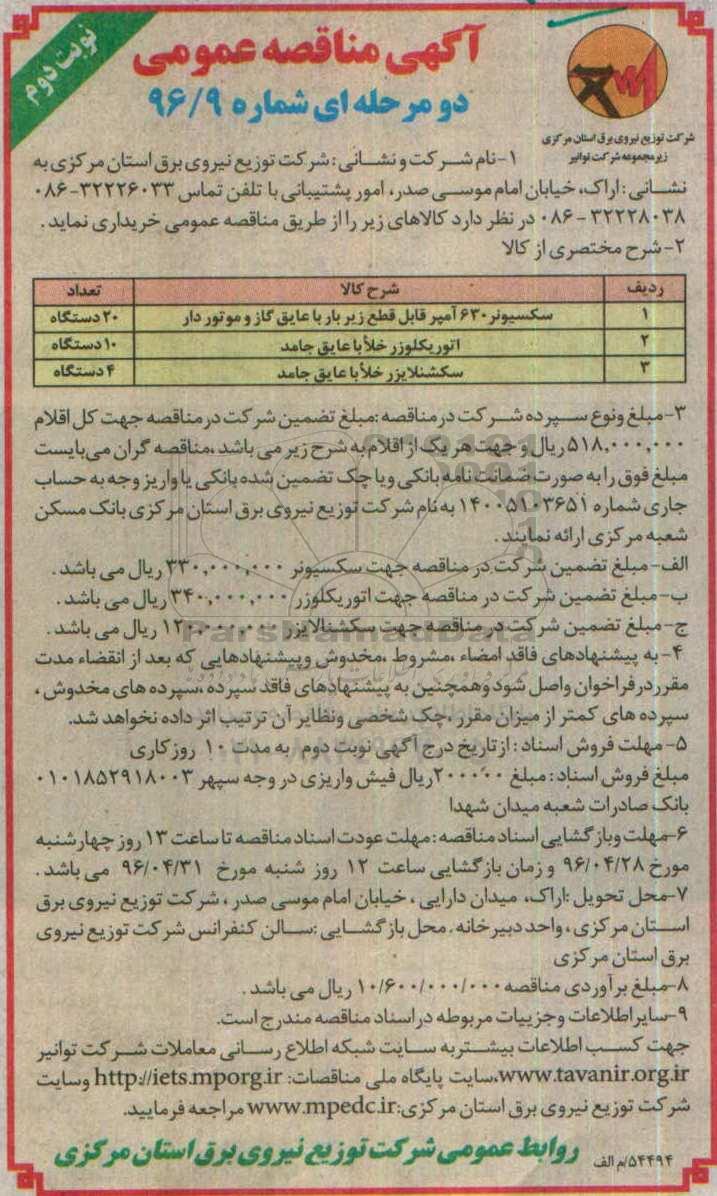 نوبت دوم
آگهی مناقصه عمومی
دو مرحله ای شماره ۹۶/۹
شرکت توزیع نیروی برق استان مرکزی
زیرمجموعه شرکت توانیر
۱-نام شرکت و نشانی: شرکت توزیع نیروی برق استان مرکزی به
نشانی: اراک، خیابان امام موسی صدر، امور پشتیبانی با تلفن تماس ۳۲۲۲۶۰۳۳-۰۸۶
۳۲۲۲۸۰۳۸-۰۸۶ در نظر دارد کالاهای زیر را از طریق مناقصه عمومی خریداری نماید.
۲-شرح مختصری از کالا
ردیف شرح کالا تعداد
۱ سکسیونر ۶۳۰ آمپر قابل قطع زیر بار با عایق گاز و موتور دار ۲۰ دستگاه
۲ اتوریکلوزر خلأ با عایق جامد ۱۰ دستگاه
۳ سکشنلایزر خلأ با عایق جامد ۴ دستگاه
۳-مبلغ ونوع سپرده شرکت درمناقصه :مبلغ تضمین شرکت درمناقصه جهت کل اقلام
۵۱۸,۰۰۰,۰۰۰ ریال و جهت هر یک از اقلام به شرح زیر می باشد ،مناقصه گران می‌بایست
مبلغ فوق را به صورت ضمانت نامه بانکی ویا چک تضمین شده بانکی یا واریز وجه به حساب
جاری شماره ۱۴۰۰۵۱۰۳۶۵۱ به نام شرکت توزیع نیروی برق استان مرکزی بانک مسکن
شعبه مرکزی ارائه نمایند.
الف- مبلغ تضمین شرکت در مناقصه جهت سکسیونر ۳۳۰,۰۰۰,۰۰۰ ریال می باشد.
ب- مبلغ تضمین شرکت در مناقصه جهت اتوریکلوزر ۳۴۰,۰۰۰,۰۰۰ ریال می باشد.
ج- مبلغ تضمین شرکت در مناقصه جهت سکشنالایزر ۱۲۰,۰۰۰,۰۰۰ ریال می باشد.
۴- به پیشنهادهای فاقد امضاء ،مشروط ،مخدوش وپیشنهادهایی که بعد از انقضاء مدت
مقرر در فراخوان واصل شود وهمچنین به پیشنهادهای فاقد سپرده ،سپرده های مخدوش ،
سپرده های کمتر از میزان مقرر ،چک شخصی ونظایر آن ترتیب اثر داده نخواهد شد.
۵- مهلت فروش اسناد : ازتاریخ درج آگهی نوبت دوم به مدت ۱۰ روز کاری
مبلغ فروش اسناد : مبلغ ۲۰۰۰۰۰ ریال فیش واریزی در وجه سپهر ۰۱۰۱۸۵۲۹۱۸۰۰۳
بانک صادرات شعبه میدان شهدا
۶-مهلت وبازگشایی اسناد مناقصه :مهلت عودت اسناد مناقصه تا ساعت ۱۳ روز چهارشنبه
مورخ ۹۶/۰۴/۲۸ و زمان بازگشایی ساعت ۱۲ روز شنبه مورخ ۹۶/۰۴/۳۱ می باشد.
۷-محل تحویل :اراک، میدان دارایی ، خیابان امام موسی صدر ، شرکت توزیع نیروی برق
استان مرکزی ، واحد دبیرخانه . محل بازگشایی :سالن کنفرانس شرکت توزیع نیروی
برق استان مرکزی
۸-مبلغ برآوردی مناقصه ۱۰/۶۰۰/۰۰۰/۰۰۰ ریال می باشد.
۹-سایر اطلاعات وجزییات مربوطه در اسناد مناقصه مندرج است.
جهت کسب اطلاعات بیشتر به سایت شبکه اطلاع رسانی معاملات شرکت توانیر
www.tavanir.org.ir،سایت پایگاه ملی مناقصات: http://iets.mporg.ir وسایت
شرکت توزیع نیروی برق استان مرکزی:www.mpedc.ir مراجعه فرمایید.
۵۴۴۹۴/م الف
روابط عمومی شرکت توزیع نیروی برق استان مرکزی
ParsNamadData